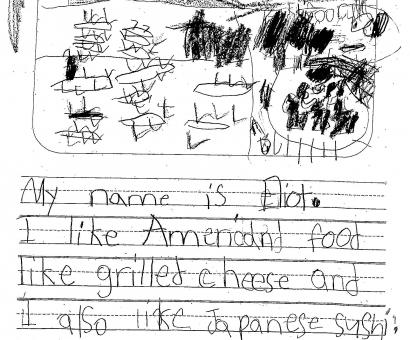 My name is Eliot.
I like Americand food
like grilled cheese and
I also like Japanese sushi.